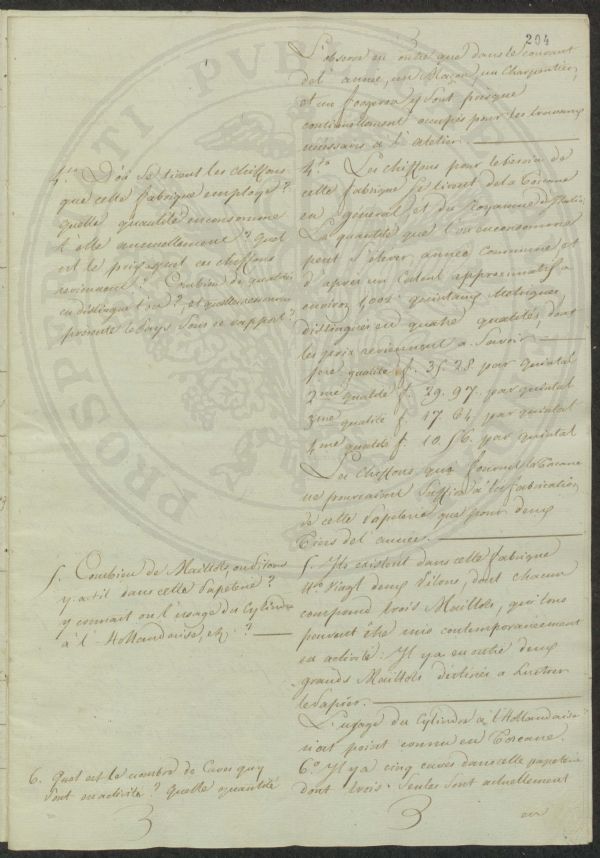 204
L'observe en outre que dans le courant
de l'année, un Maçon, un Charpentier,
et un forgeron y sont presque
continuellement occupés pour les travaux
necessaires à l'atelier.
4.° D'où se tirent les chiffons
que cette fabrique employe?
Quelle quantité en consomme
t elle annuellement? Quel
est le prix auquel ces chiffons
reviennent? Combien de qualités
en distingue t'on? et quelles ressources
présente le Pays sous ce rapport?
4.° Les chiffons pour le besoin de
cette fabrique se tirent de la Toscane
en général et du Royaume d'Italie.
La quantité que l'on en consomme
peut s'elever, année commune et
d'après un Calcul approximatif à
environ 1,002 quintaux Metriques,
distingués en quatre qualités, dont
les prix reviennent a Savoir
1ere qualité f. 35. 28. par quintal
2me qualité f. 29. 97. par quintal
3me qualité f. 17 64. par quintal
4me qualité f. 10. 56. par quintal
Les Chiffons que fournit la Toscane
ne pourraient suffire à la fabrication
de cette Papeterie que pour deux
Tiers de l'année.
5. Combien de Maillots ou Pilons
y a t il dans cette Papeterie?
y connait on l'usage du Cylindre
à l'Hollandaise, etc.?
5. Ils existent dans cette fabrique
N.° Vingt deux Pilons, dont chacun
comprend trois Maillots, qui tous
peuvent être mis contemporanément
en activité. Il y a en outre deux
grands Maillots destinés a Lustrer
le Papier.
L'usage du Cylindre à l'Hollandaise
n'est point connu en Toscane.
6. Quel est le nombre de Cuves qui y
sont en activité? Quelle quantité
6.° Il y a cinq cuves dans cette papeterie
dont trois Seules sont actuellement
en